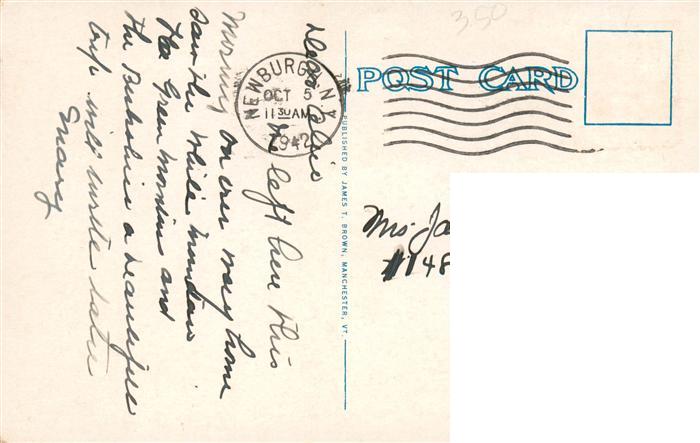 3.50
POST CARD
NEWBURGH N.Y.
OCT 5
11 30 AM
1942
PUBLISHED BY JAMES T. BROWN, MANCHESTER, VT.
Dear
We left here this
Morning on our way home
saw the White Mountains
The Green Mountains and
the Berkshires a beautiful
trip will write later
Mrs. Ja
#148